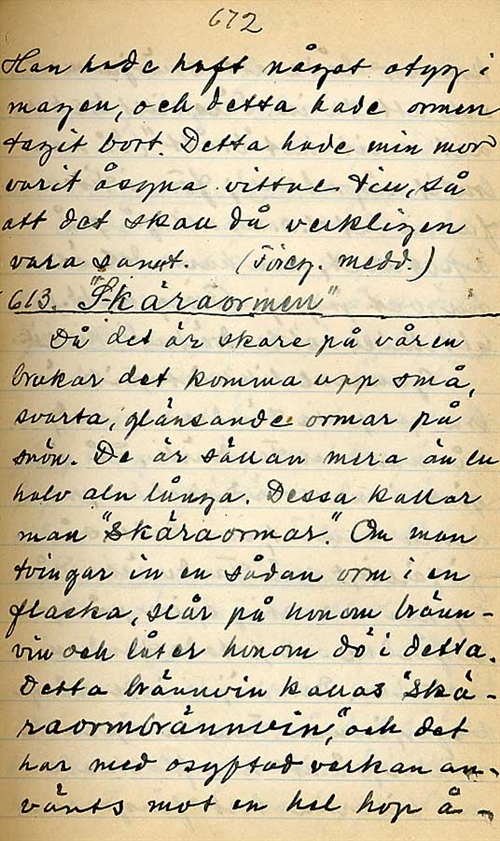 672
Han hade haft något otyg i
magen, och detta hade ormen
tagit bort. Detta hade min mor
varit åsyna vittne till, så
att det skall då verkligen
vara sannt. (Föreg. medd.)
613. "Skäraormen"
Då det är skare på våren
brukar det komma upp små,
svarta, glänsande ormar på
snön. De är sällan mera än en
halv aln långa. Dessa kallar
man "Skäraormar." Om man
tvingar in en sådan orm i en
flaska, slår på honom bränn-
vin och låter honom dö i detta.
Detta brännvin kallas "Skä-
raormbrännvin," och det
har med osyftad verkan an-
vänts mot en hel hop å-